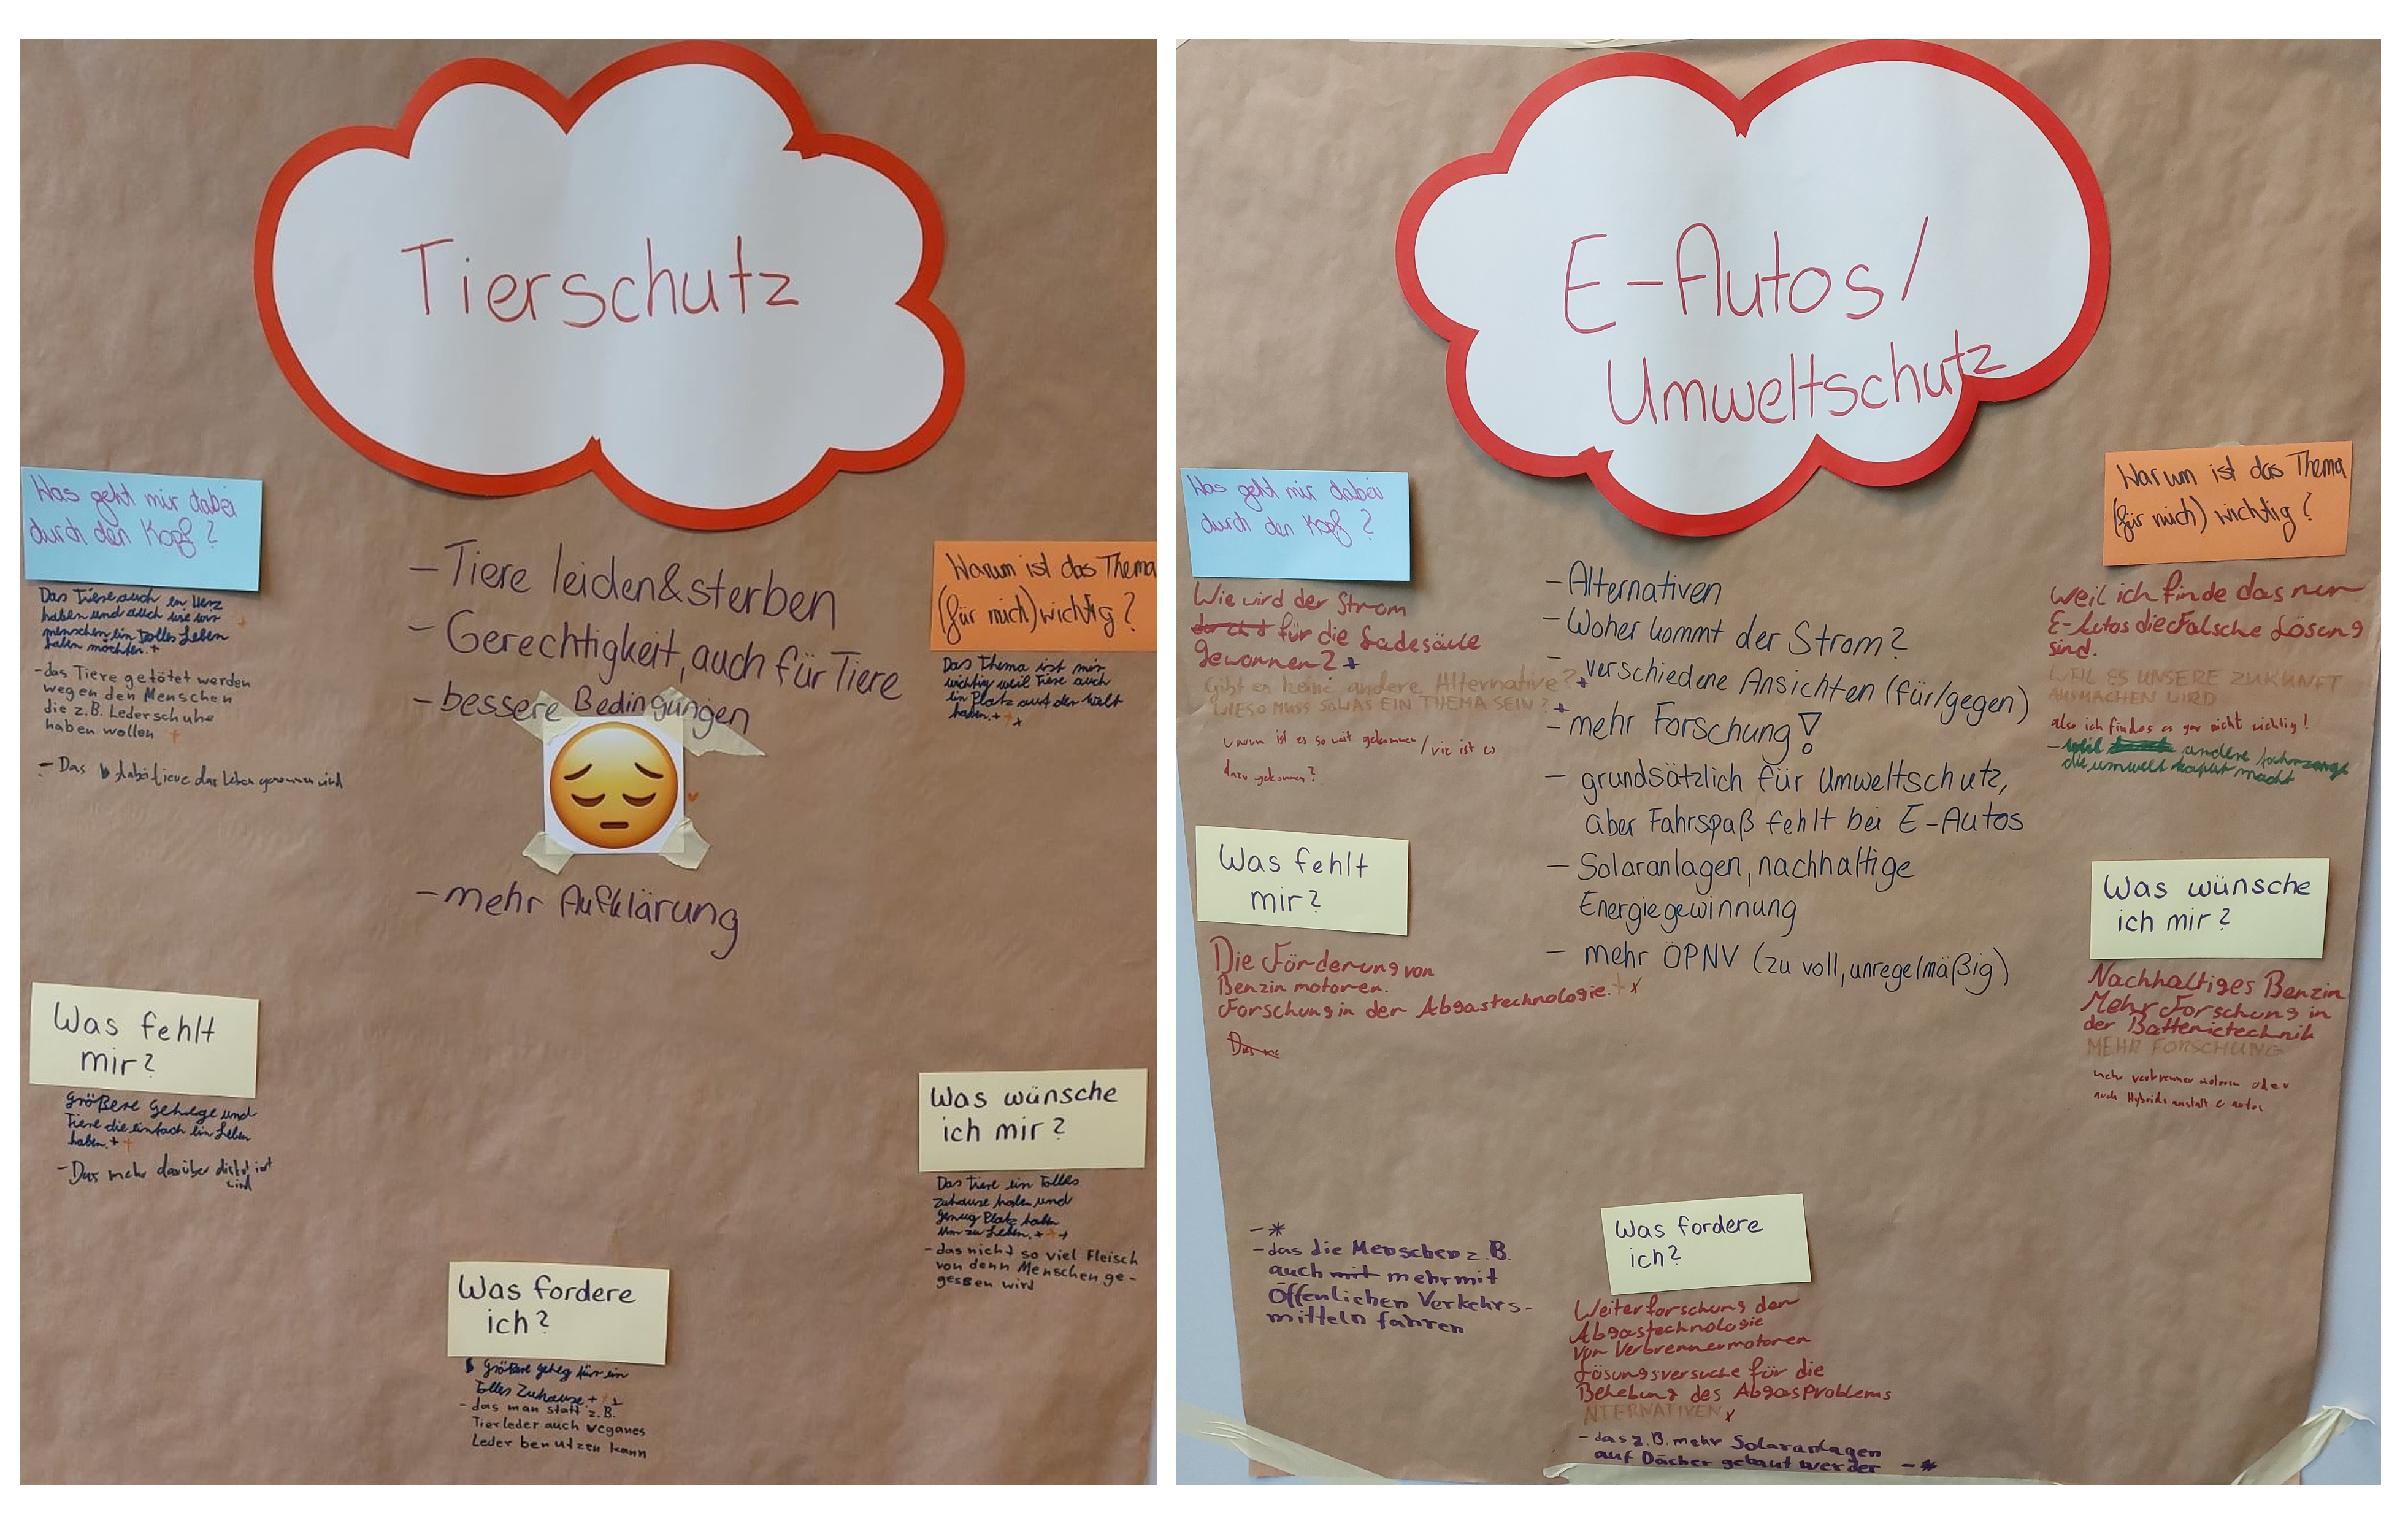 Tierschutz
Was geht mir dabei
durch den Kopf?
Das Tiere auch en Herz
haben und auch wie wir
menschen ein tolles Leben
haben möchten. +
- das Tiere getötet werden
wegen den Menschen
die z.B. Lederschuhe
haben wollen +
- Das dabei tieve das Leben genommen wird
- Tiere leiden & sterben
- Gerechtigkeit, auch für Tiere
- bessere Bedingungen
- mehr Aufklärung
Warum ist das Thema
(für mich) wichtig?
Das Thema ist mir
wichtig weil Tiere auch
ein Platz auf der Welt
haben. + +
Was fehlt
mir?
größere Gehege und
Tiere die einfach ein Leben
haben. + +
- Das mehr darüber
wird
Was wünsche
ich mir?
Das Tiere ein tolles
Zuhause haben und
genug Platz haben
um zu Leben. + + +
- das nicht so viel Fleisch
von denn Menschen ge-
gessen wird
Was fordere
ich?
Größere geheg für ein
tolles Zuhause + + +
- das man statt z.B.
Tierleder auch veganes
Leder benutzen kann
E-Autos/
Umweltschutz
Was geht mir dabei
durch den Kopf?
Wie wird der Strom
für die Ladesäule
gewonnen? +
Gibt es keine andere Alternative? +
WIESO MUSS SOWAS EIN THEMA SEIN? +
Warum ist es so weit gekommen / wie ist es
dazu gekommen?
- Alternativen
- Woher kommt der Strom?
- verschiedene Ansichten (für/gegen)
- mehr Forschung!
- grundsätzlich für Umweltschutz,
aber Fahrspaß fehlt bei E-Autos
- Solaranlagen, nachhaltige
Energiegewinnung
- mehr ÖPNV (zu voll, unregelmäßig)
Warum ist das Thema
(für mich) wichtig?
Weil ich finde das nur
E-Autos die Falsche Lösung
sind.
WEIL ES UNSERE ZUKUNFT
AUSMACHEN WIRD
also ich findes es gar nicht wichtig!
- weil andere fahrzeuge
die umwelt kaput macht
Was fehlt
mir?
Die Förderung von
Benzin motoren.
Forschung in der Abgastechnologie. + x
Was wünsche
ich mir?
Nachhaltiges Benzin
Mehr Forschung in
der Batterietechnik
MEHR FORSCHUNG
mehr verbrenner motoren oder
auch Hybrids anstatt e autos
- *
- das die Menschen z.B.
auch mit mehr mit
Öffenlichen Verkehrs-
mitteln fahren
Was fordere
ich?
Weiterforschung der
Abgastechnologie
von Verbrennermotoren
Lösungsversuche für die
Behebung des Abgasproblems
NTERNATIVEN x
- das z.B. mehr Solaranlagen
auf Dächer gebaut werder - *